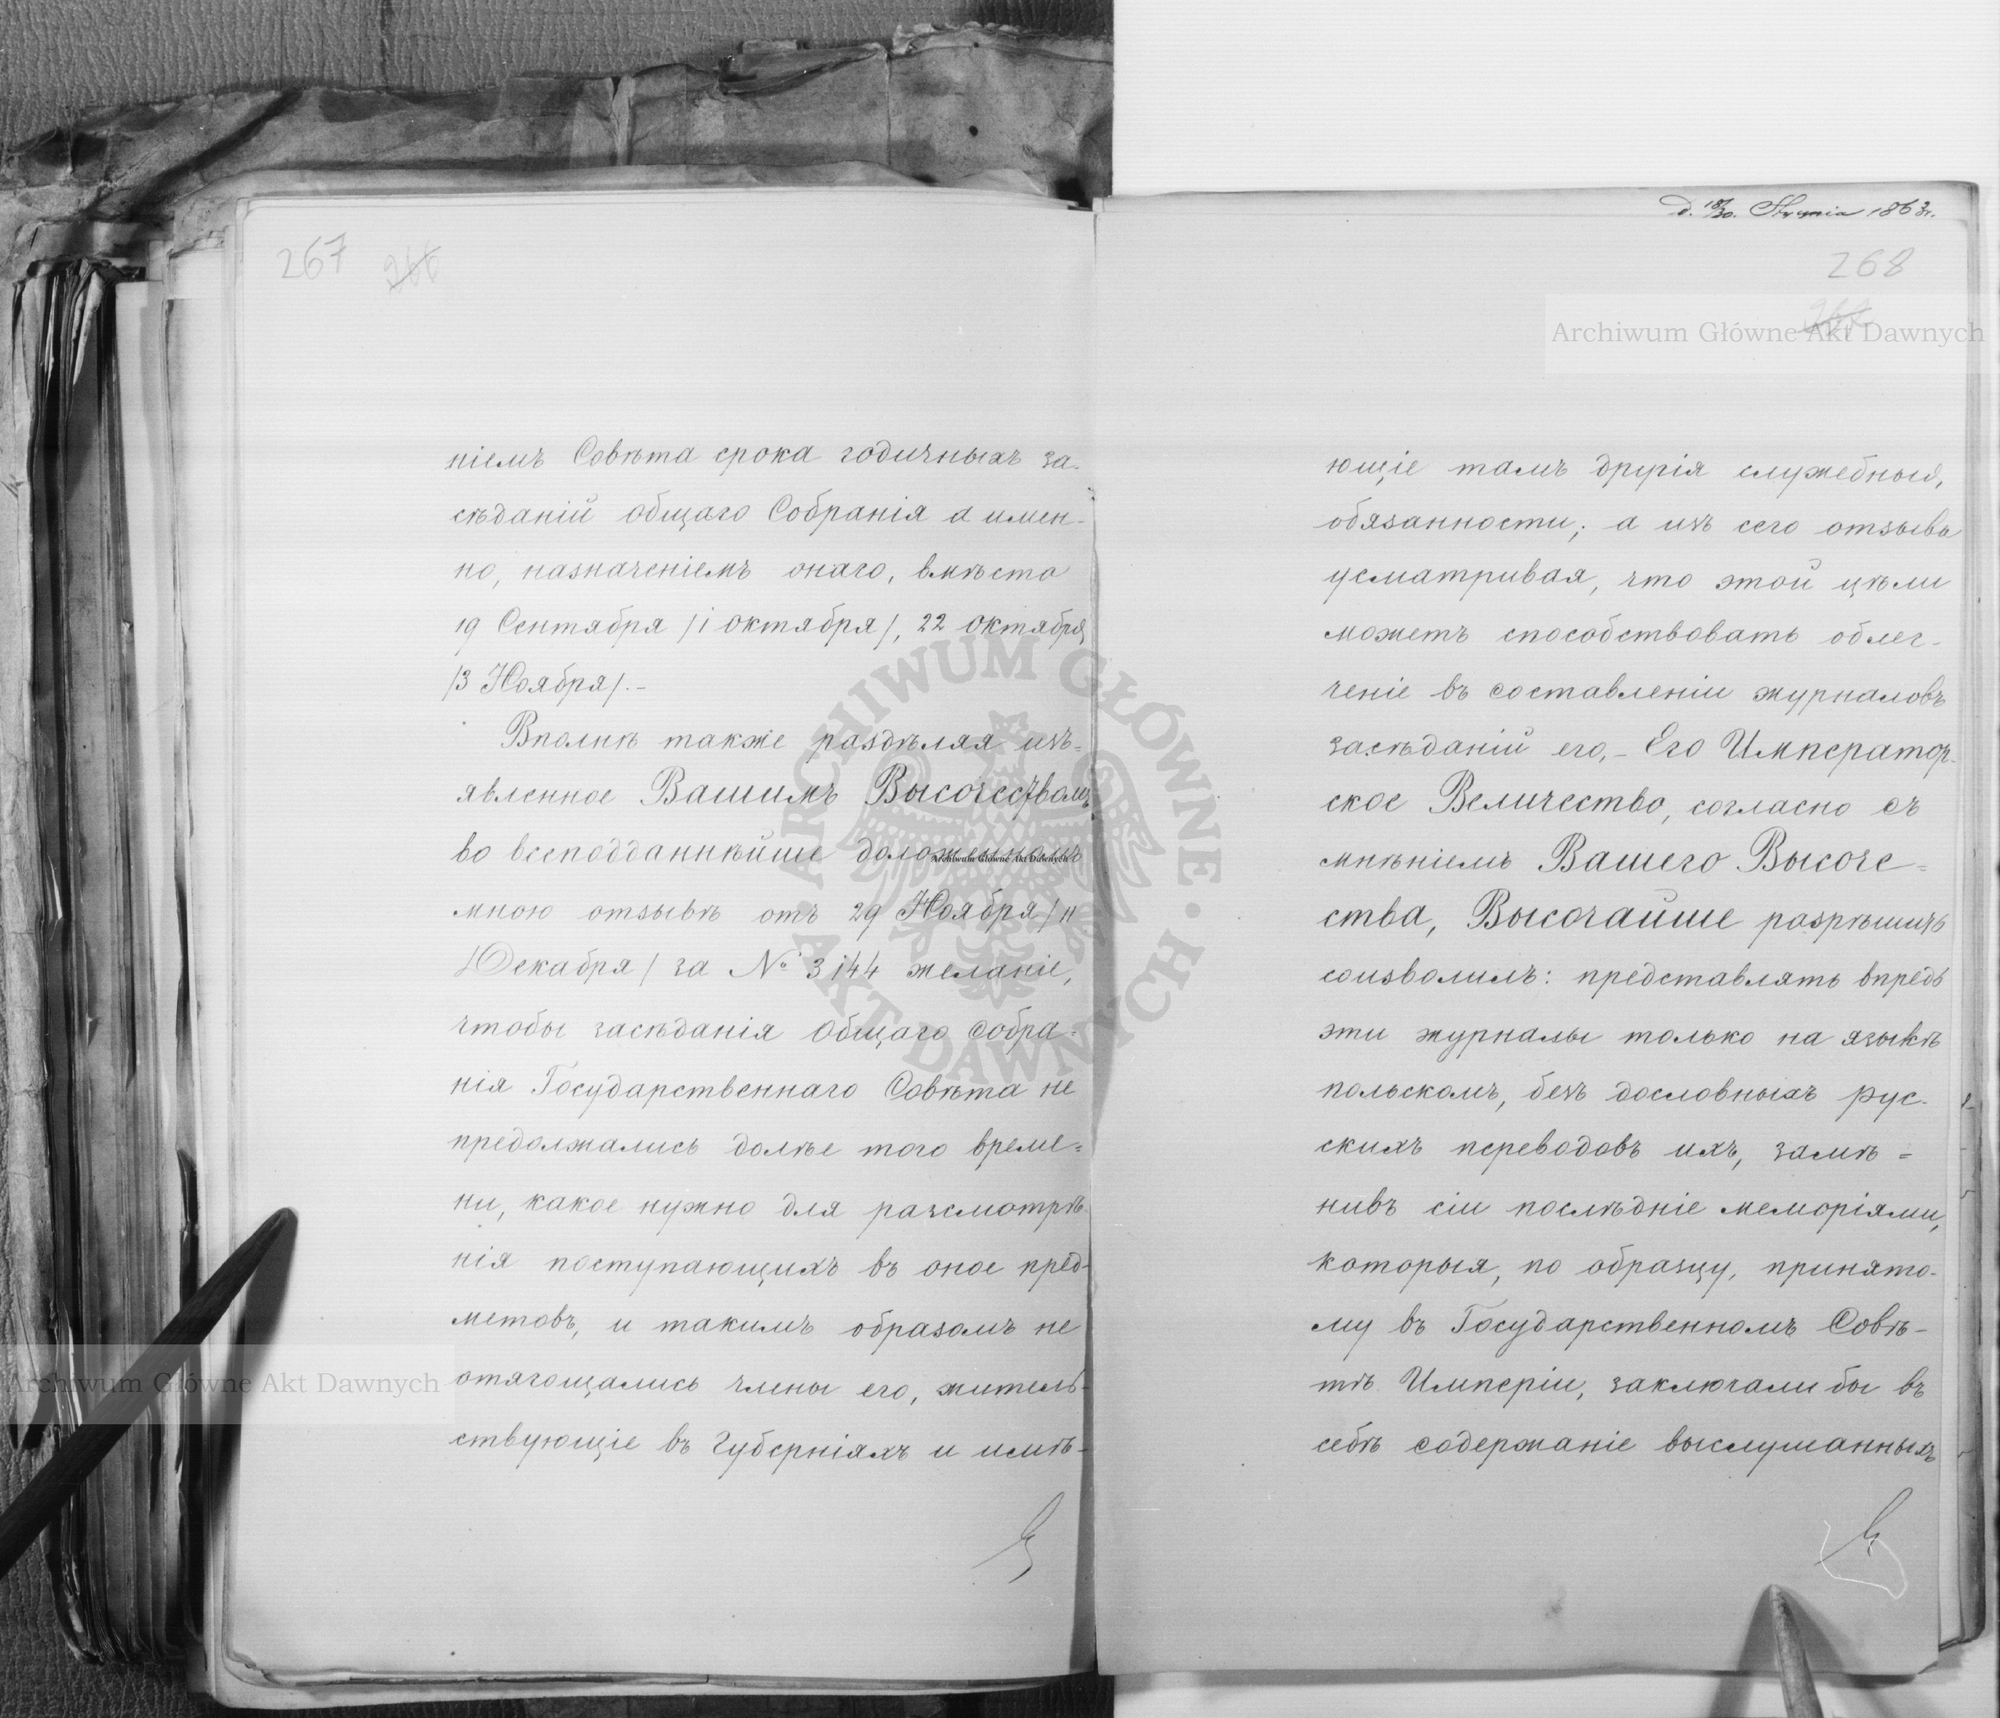 267 266
ніемъ Совѣта срока годичныхъ за-
сѣданій общаго Собранія а имен-
но, назначеніемъ онаго, вмѣсто
19 Сентября /1 октября/, 22 октября
/3 Ноября/.-
Вполнѣ также раздѣляя изъ=
явленное Вашимъ Высочествомъ
во всеподданнѣйше доложенномъ
мною отзывѣ отъ 29 Ноября /11
Декабря/ за № 3144 желаніе,
чтобы засѣданія Общаго Собра=
нія Государственнаго Совѣта не
предолжались долѣе того време=
ни, какое нужно для разсмотрѣ-
нія поступающихъ въ оное пред-
метовъ, и такимъ образомъ не
отягощались члены его, житель-
ствующіе въ Губерніяхъ и имѣ-
d. 18/30. Stycznia 1863 r.
268
267
ющіе тамъ другія служебныя,
обязанности; а изъ сего отзыва
усматривая, что этой цѣли
можетъ способствовать облег-
ченіе въ составленіи журналовъ
засѣданій его,- Его Император-
ское Величество, согласно съ
мнѣніемъ Вашего Высоче=
ства, Высочайше разрѣшить
соизволилъ: представлять впредь
эти журналы только на языкѣ
польскомъ, безъ дословныхъ рус-
скихъ переводовъ ихъ, замѣ=
нивъ сіи послѣдніе меморіями,
которыя, по образцу, принято-
му въ Государственномъ Совѣ-
тѣ Имперіи, заключали бы въ
себѣ содержаніе выслушанныхъ
Archiwum Główne Akt Dawnych
Archiwum Główne Akt Dawnych
Archiwum Główne Akt Dawnych
ARCHIWUM GŁÓWNE · AKT DAWNYCH ·